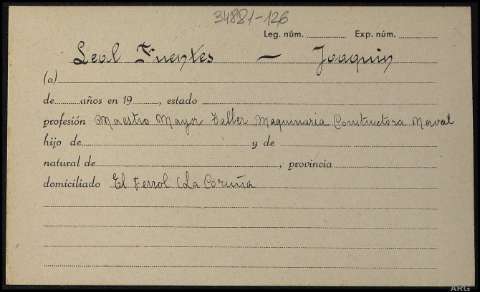 34881-126
Leg. núm. Exp. núm.
Leal Fuentes — Joaquin
(a)
de años en 19 , estado
profesión Maestro Mayor Taller Maquinaria Constructora Naval
hijo de y de
natural de , provincia
domiciliado El Ferrol (La Coruña
ARG